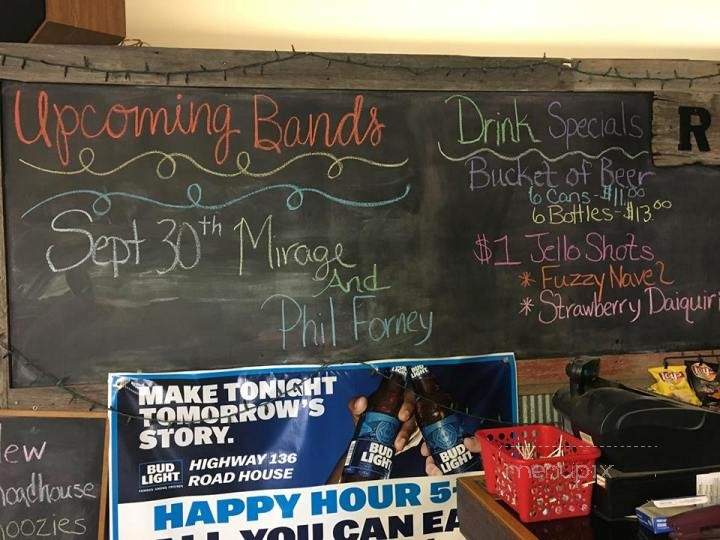 Upcoming Bands
Sept 30th Mirage
And
Phil Forney
Drink Specials
Bucket of Beer
6 Cans - $11.00
6 Bottles - $13.00
$1 Jello Shots
* Fuzzy Navel
* Strawberry Daiquiri
R
MAKE TONIGHT
TOMORROW'S
STORY.
BUD
LIGHT
HIGHWAY 136
ROAD HOUSE
BUD
LIGHT
BUD
LIGHT
HAPPY HOUR 5-
ALL YOU CAN EA
ew
oadhouse
oozies
Lay's
menupix